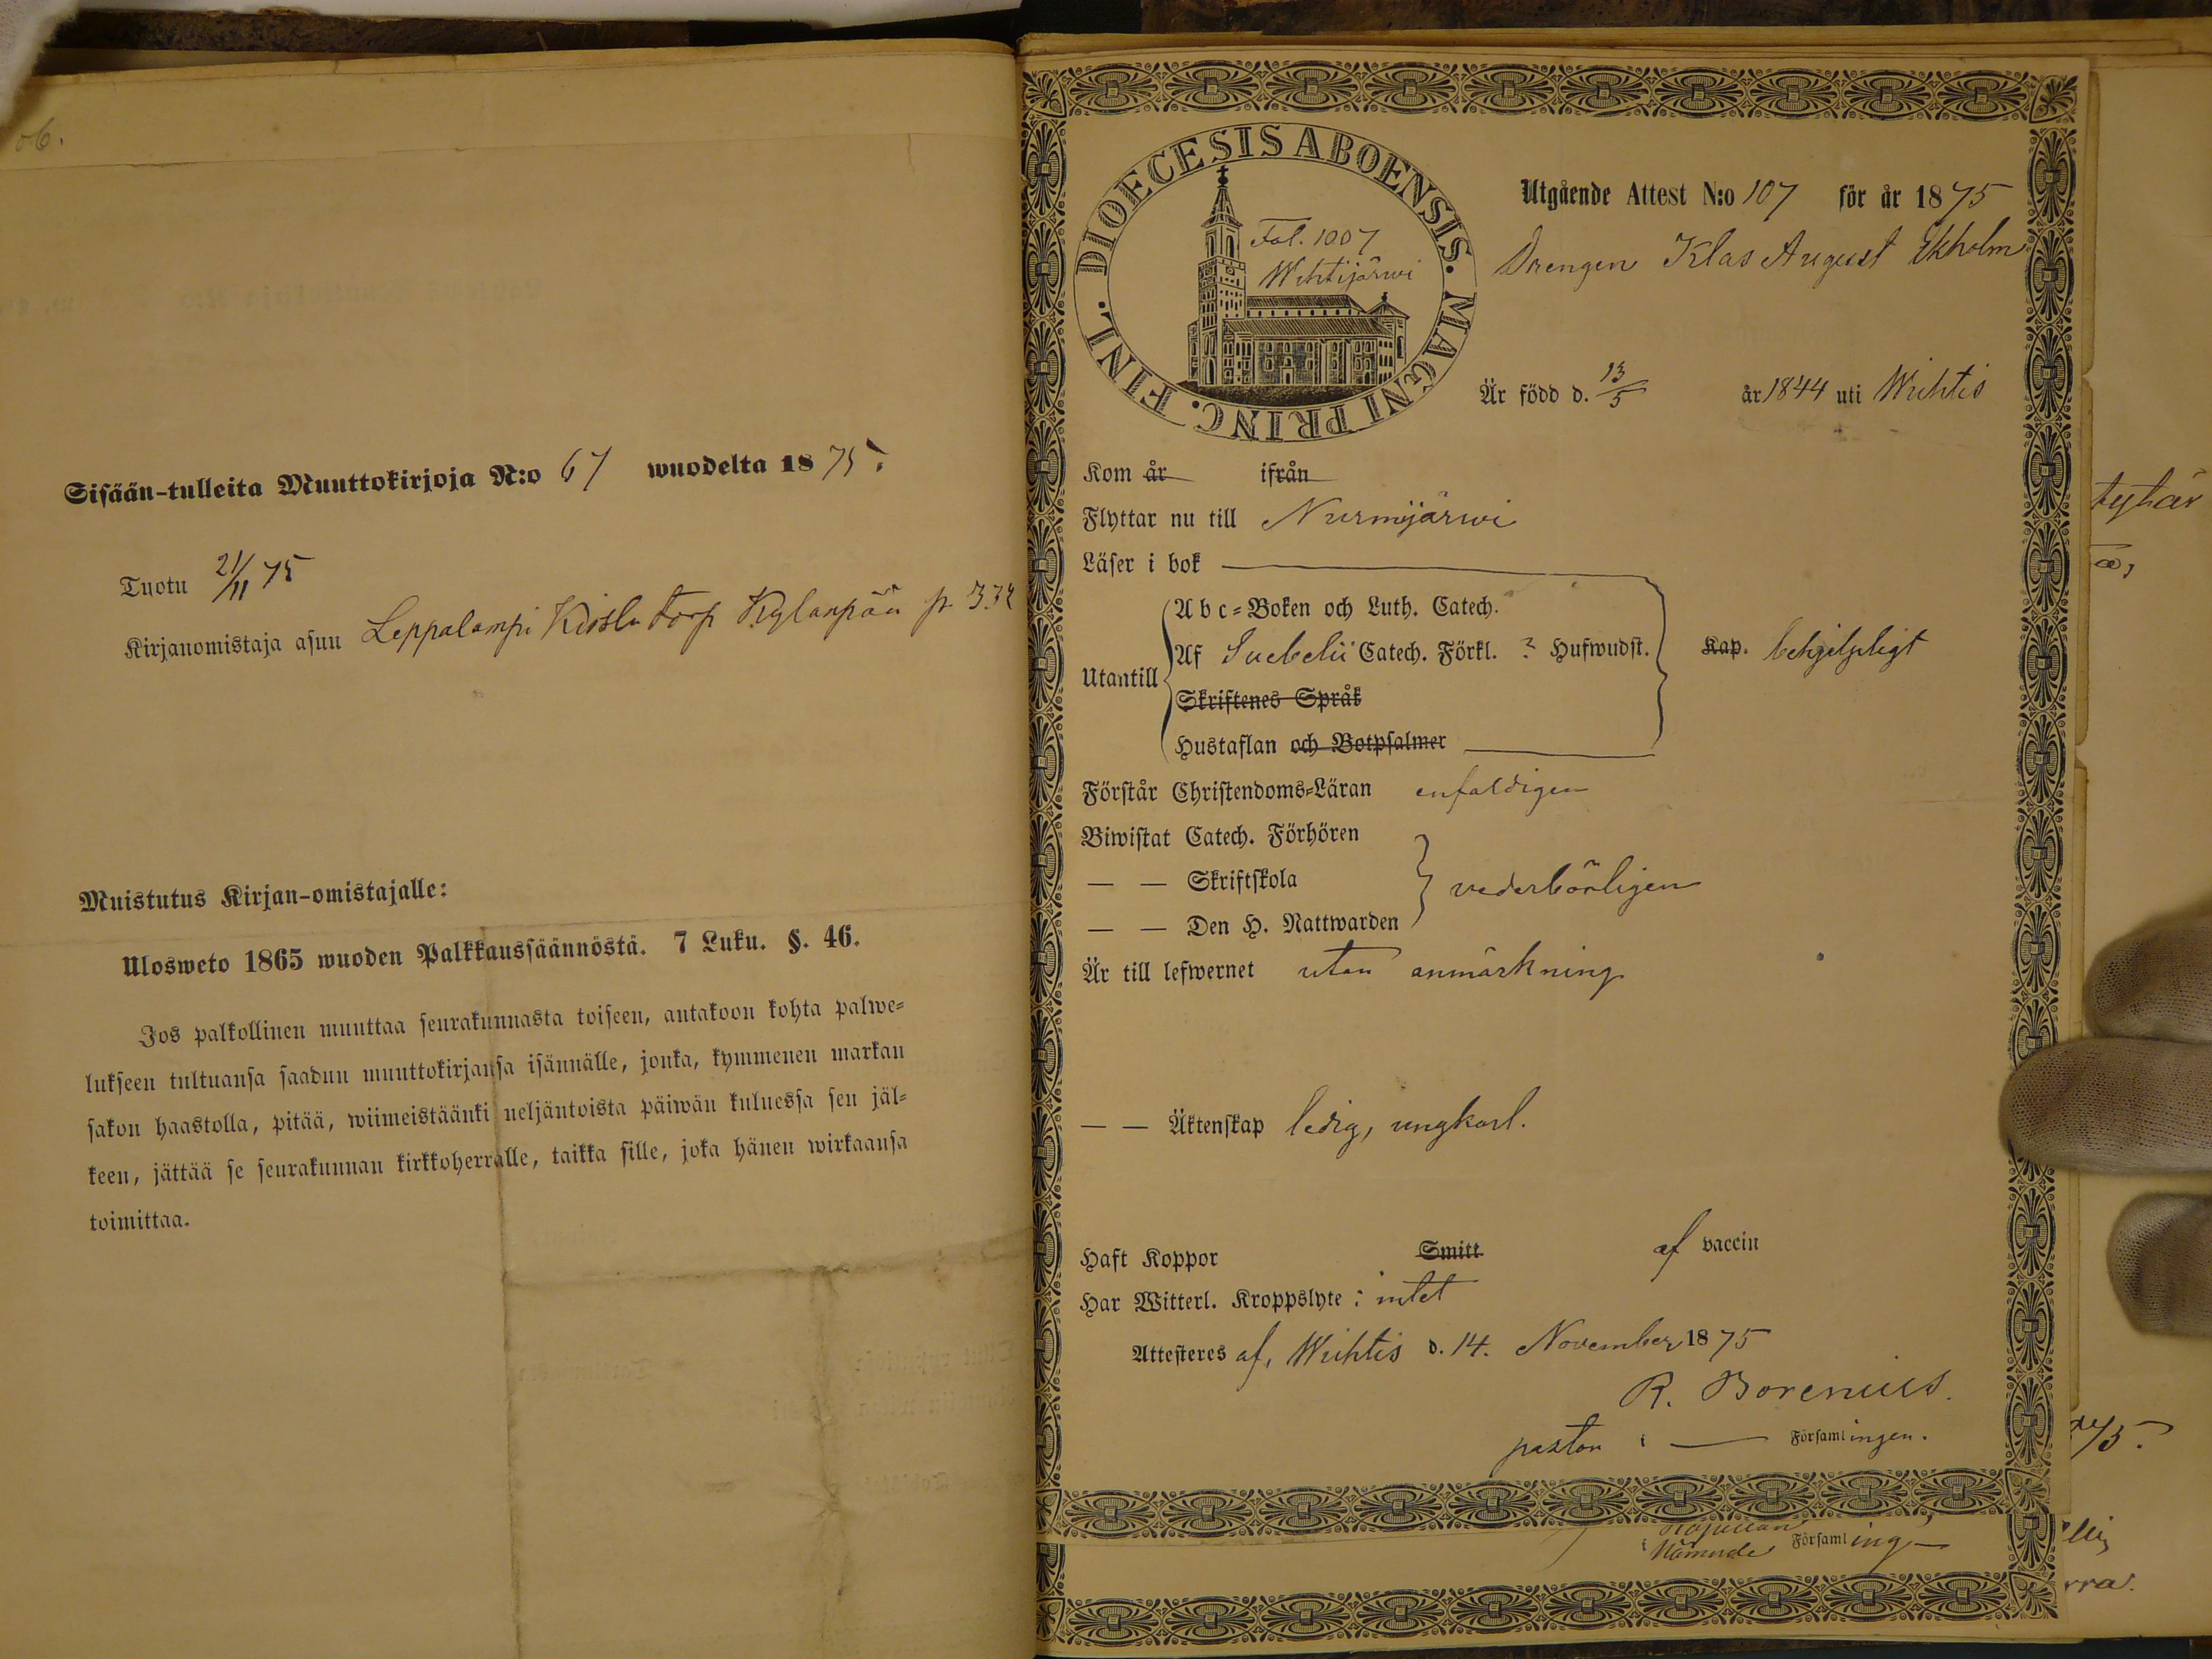 06.
Sisään-tulleita Muuttokirjoja N:o 67 wuodelta 1875.
Tuotu 21/11 75
Kirjanomistaja asuu Leppalampi torp Kylanpää p 332
Muistutus Kirjan-omistajalle:
Ulosweto 1865 wuoden Palkkaussäännöstä. 7 Luku. §. 46.
Jos palkollinen muuttaa seurakunnasta toiseen, antakoon kohta palwe=
lukseen tultuansa saadun muuttokirjansa isännälle, jonka, kymmenen markan
sakon haastolla, pitää, wiimeistäänki neljäntoista päiwän kuluessa sen jäl=
keen, jättää se seurakunnan kirkkoherralle, taikka sille, joka hänen wirkaansa
toimittaa.
DIOECESIS ABOENSIS. MAGNI PRINC. FINL.
Fol. 1007
Wihtijärwi
Utgående Attest N:o 107 för år 1875
Drengen Klas August Ekholm
Är född d. 13/5 år 1844 uti Wichtis
Kom år ifrån
Flyttar nu till Nurmijärwi
Läser i bok
Utantill
A b c=Boken och Luth. Catech.
Af Svebelii Catech. Förkl. ? Hufwudst.
Skriftenes Språk
Hustaflan och Botpsalmer
Kap. behjelpligt
Förstår Christendoms=Läran enfaldigen
Biwistat Catech. Förhören
— — Skriftskola
— — Den H. Nattwarden
vederbörligen
Är till lefwernet utan anmärkning
— — Äktenskap ledig, ungkarl.
Haft Koppor Smitt af vaccin
Har Witterl. Kroppslyte: intet
Attesteres af, Wichtis d. 14. November 1875
R. Borenius.
pastor i — Församlingen.
Kapellan
i Nämnde Församling